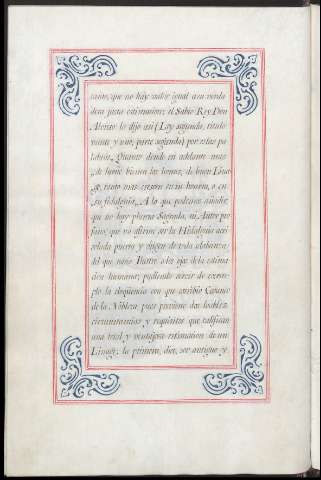 tanto, que no hay valor igual a su verda
dera justa estimacion: el Sabio Rey Don
Alonso lo dijo asi (Ley segunda, titulo
veinte y uno, parte segunda) por estas pa
labras. Quanto dende en adelante mas
de lueñe vienen los homes, de buen Lina
ge, tanto mas crescen en su honrra, e en
su fidalguia. A lo que podemos añadir,
que no hay pluma Sagrada, ni Autor pro
fano, que no afirme ser la Hidalguia acri
solada puerto y origen de toda alabanza
del que nacio Ilustre a los ojos de la estima
cion humana; pudiendo servir de exem
plo la eloqüencia con que escribio Casaneo
de la Nobleza pues previene dos loables
circunstancias y requisitos que califican
una total y ventajosa estimacion de un
Linage: la primera, dice, ser antiguo; y